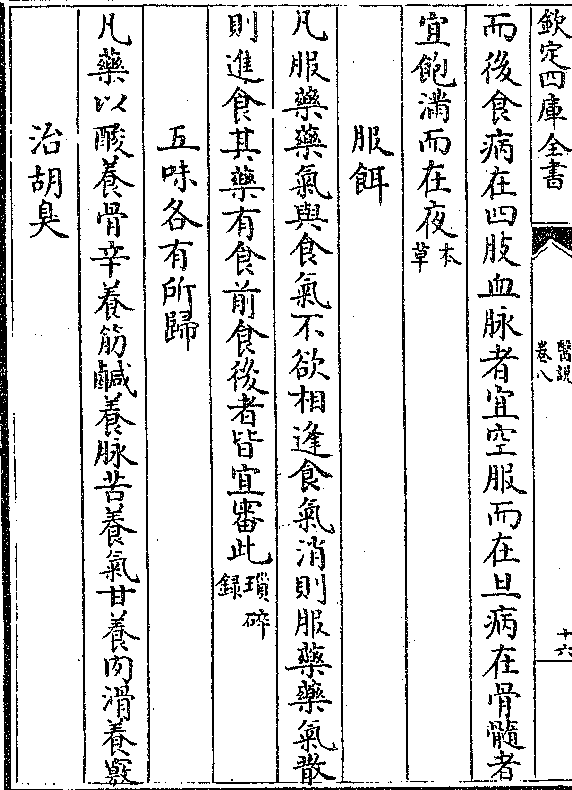 欽定四庫全書
醫説
卷八
十六
而後食病在四肢血脉者宜空服而在旦病在骨髓者
宜飽滿而在夜本草
服餌
凡服藥藥氣與食氣不欲相逢食氣消則服藥藥氣散
則進食其藥有食前食後者皆宜審此瑣碎録
五味各有所歸
凡藥以酸養骨辛養筋鹹養脉苦養氣甘養肉滑養竅
治胡臭